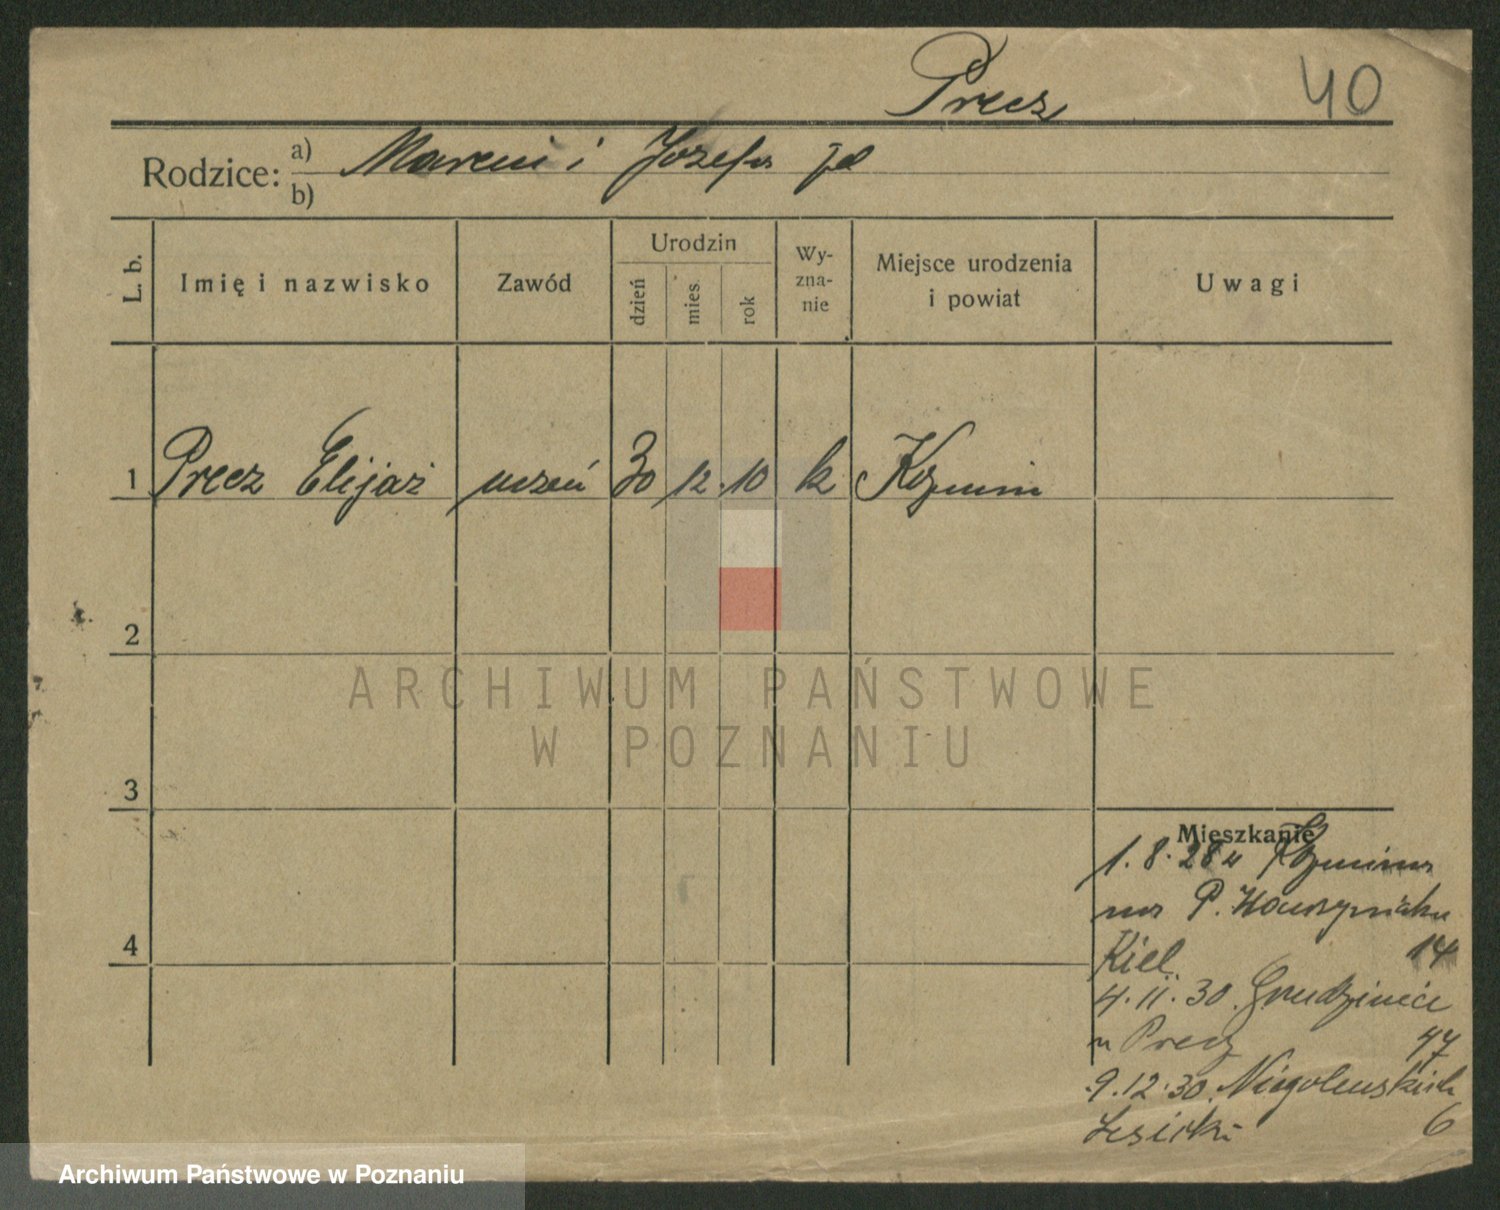 Precz
40
Rodzice:
a) Marcin i Józefa
b)
L. b.
Imię i nazwisko
Zawód
Urodzin
dzień
mies.
rok
Wy-
zna-
nie
Miejsce urodzenia
i powiat
Uwagi
1 Precz Elijasz uczeń 30 12 10 k Koźmin
2
ARCHIWUM PAŃSTWOWE
W POZNANIU
3
4
Mieszkanie
1.8.28 z Koźmina
na P.
Kiel. 14
4.11.30 Grudzieniec
u Precz 47
9.12.30 Niegolewskich
6
Archiwum Państwowe w Poznaniu